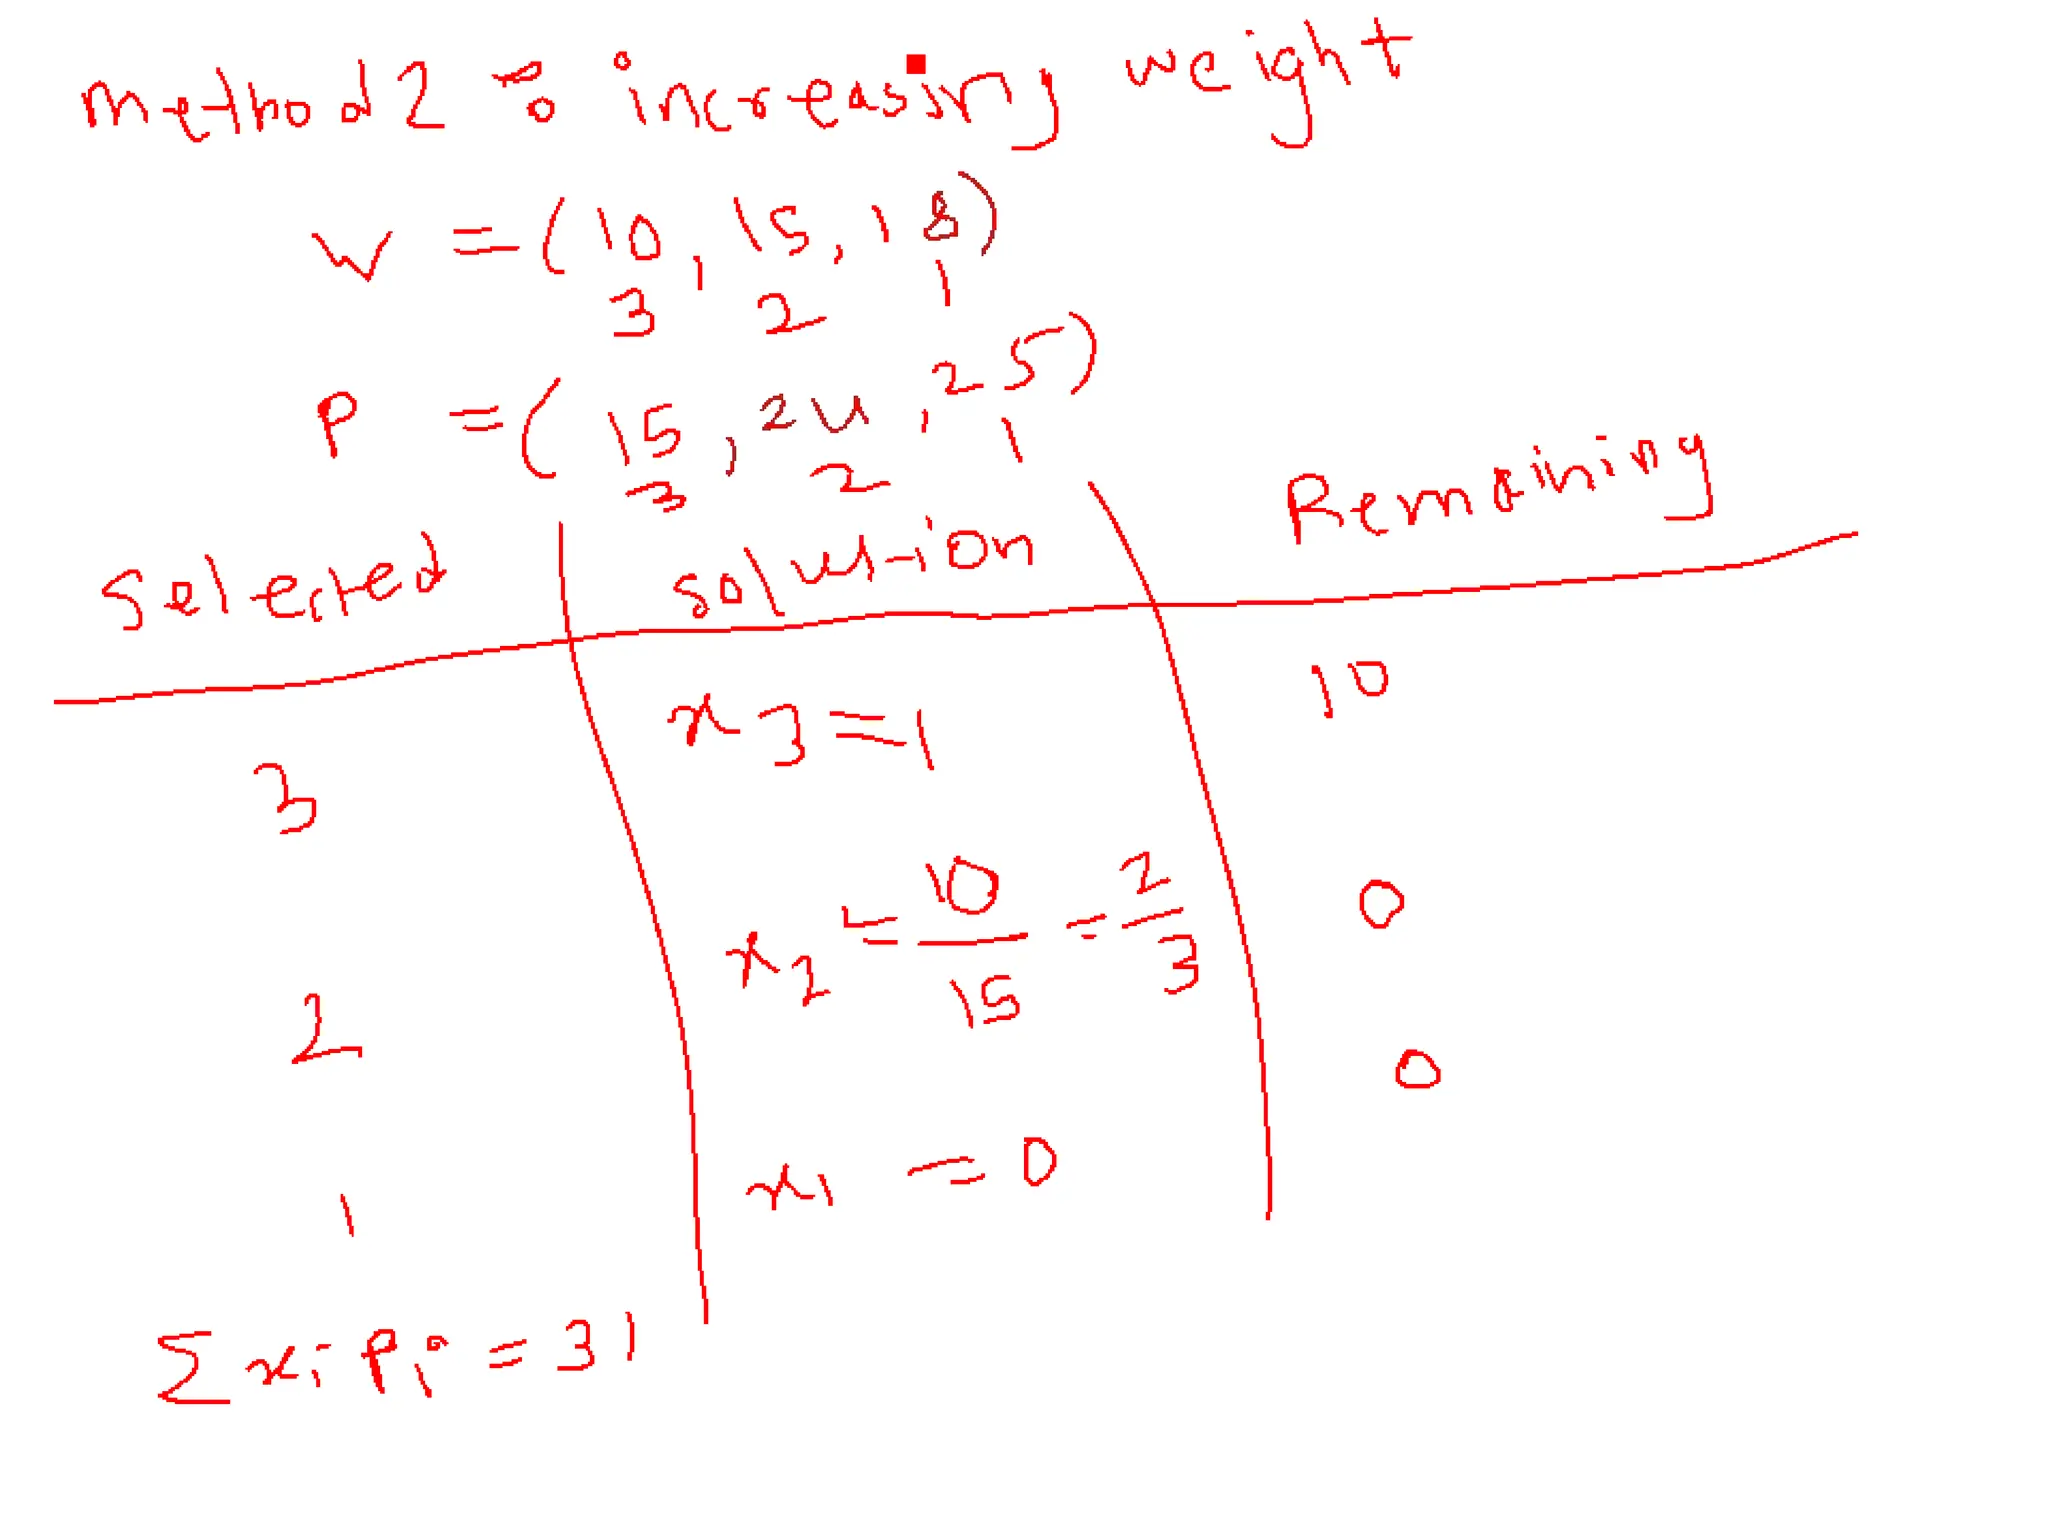 Method 2 : increasing weight
W = (10, 15, 18)
3 2 1
P = (15, 24, 25)
3 2 1
Selected solution Remaining
3 x3 = 1 10
2 x2 = 10/15 = 2/3 0
1 x1 = 0 0
Σ xi Pi = 31